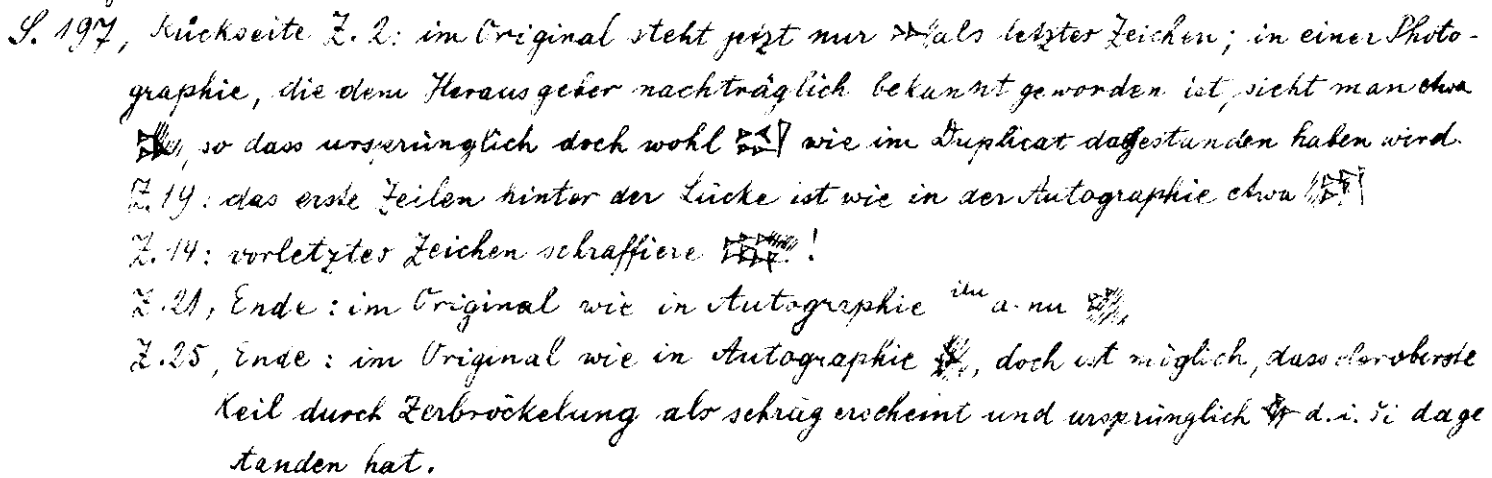 S. 197, Rückseite Z. 2: im Original steht jetzt nur als letztes Zeichen; in einer Photo-
graphie, die dem Herausgeber nachträglich bekannt geworden ist, sieht man etwa
, so dass ursprünglich doch wohl wie im Duplicat dagestanden haben wird.
Z. 19: das erste Zeilen hinter der Lücke ist wie in der Autographie etwa
Z. 14: vorletztes Zeichen schraffiere !
Z. 21, Ende: im Original wie in Autographie ilu a-nu
Z. 25, Ende: im Original wie in Autographie , doch ist möglich, dass der oberste
Keil durch Zerbröckelung als schräg erscheint und ursprünglich d. i. ši dage
standen hat.